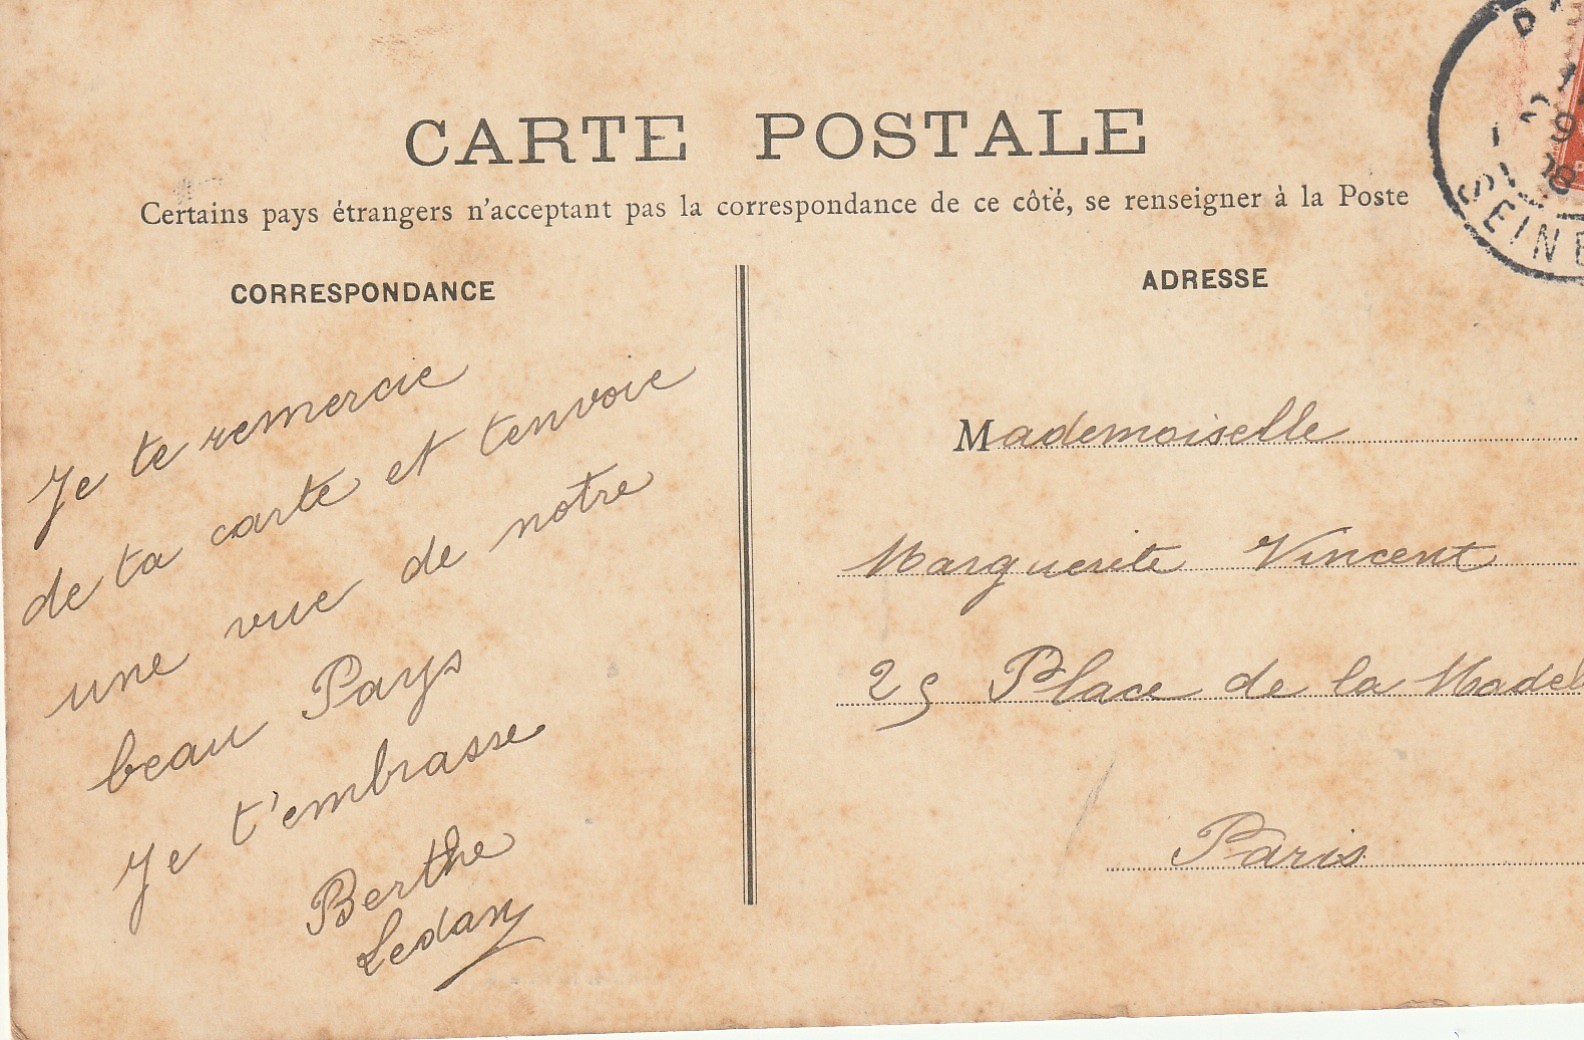 CARTE POSTALE
Certains pays étrangers n'acceptant pas la correspondance de ce côté, se renseigner à la Poste
CORRESPONDANCE
Je te remercie
de ta carte et tenvoie
une vue de notre
beau Pays
Je t'embrasse
Berthe
Ledany
ADRESSE
Mademoiselle
Marguerite Vincent
25 Place de la Madel
Paris
SEINE